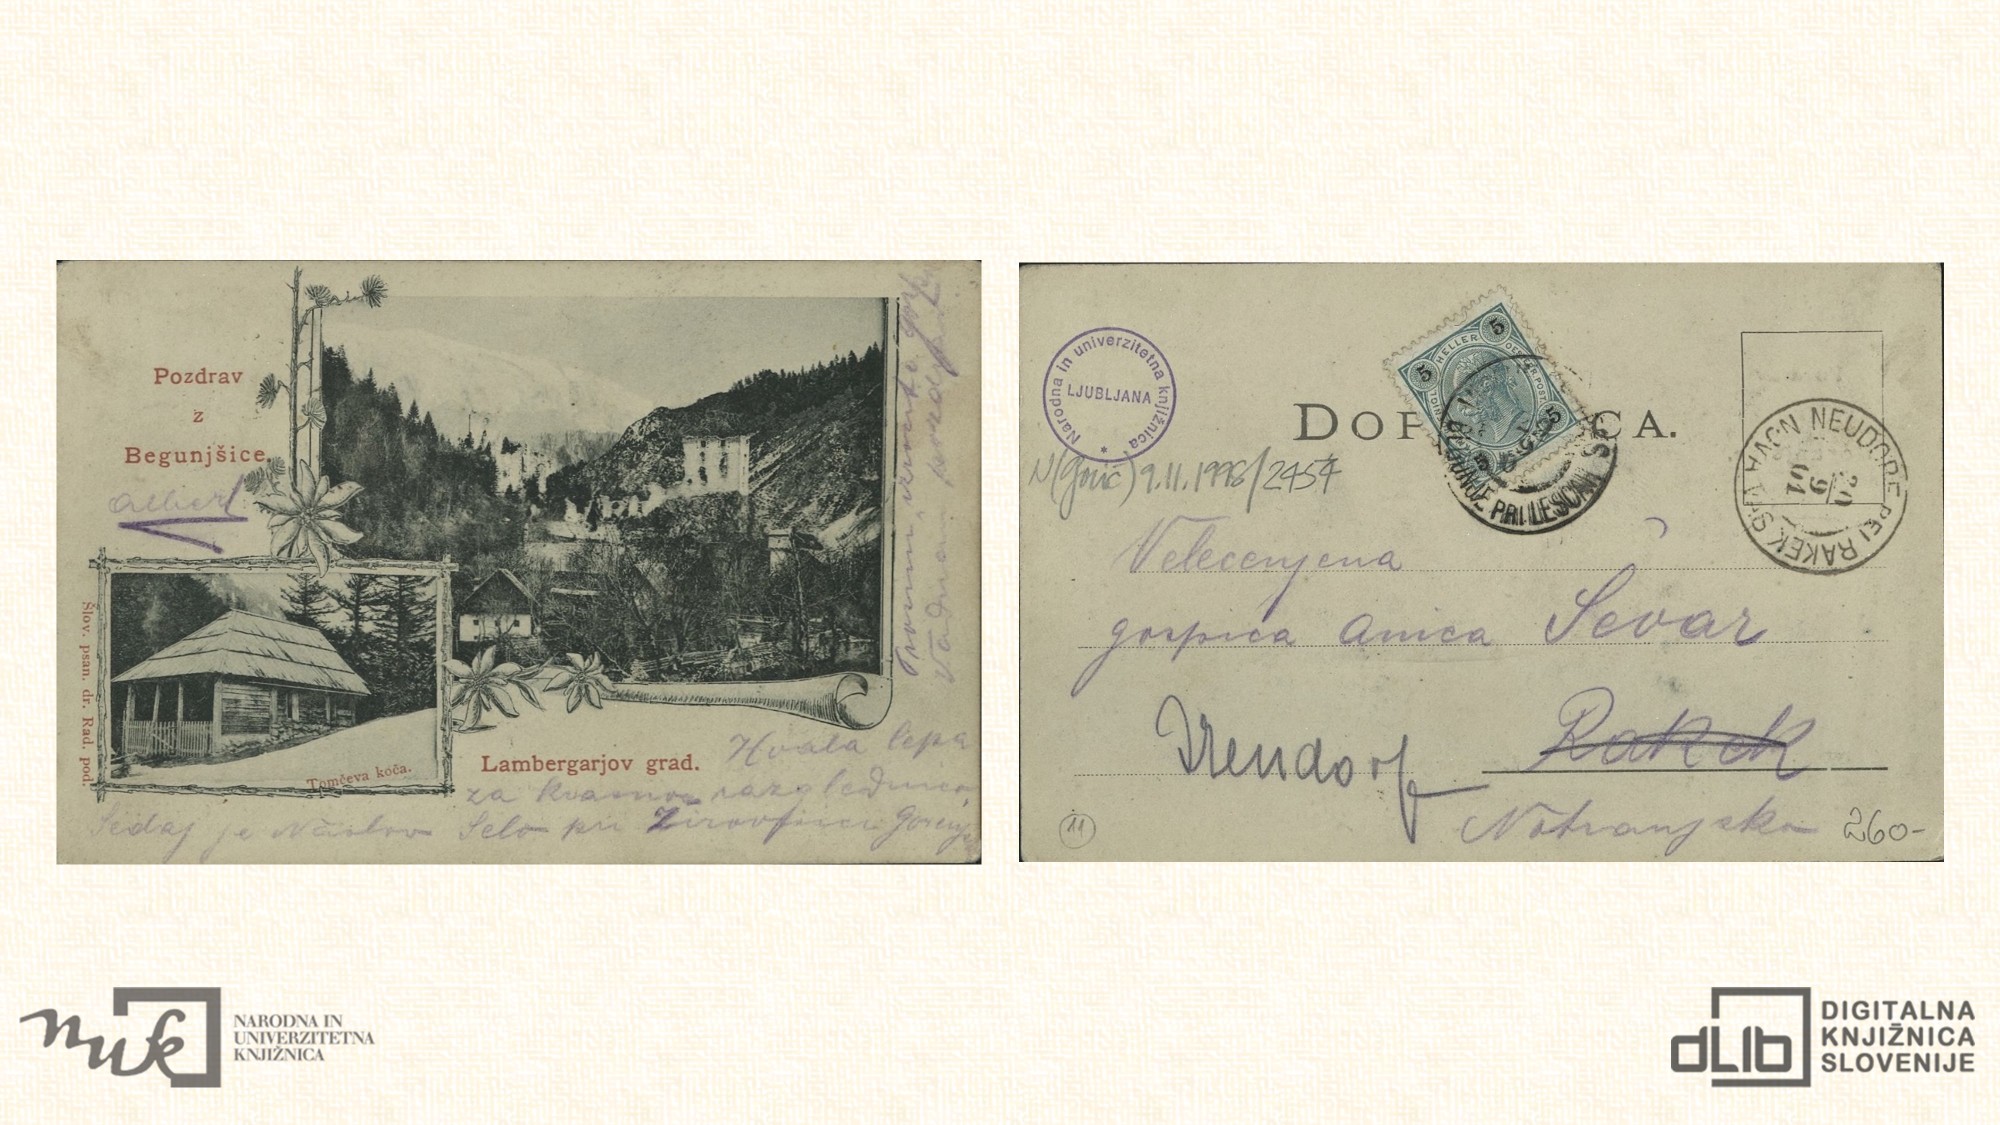 Pozdrav
z
Begunjšice.
Albert
Slov. psan. dr. Rad. pod.
Tomčeva koča.
Lambergarjov grad.
Hvala lepa
za krasno razglednico.
Sedaj je Naslov Selo pri Žirovnici Gorenjs
Narodna in univerzitetna knjižnica
LJUBLJANA
N(Gorič) 9.11.1998/2454
DOP CA.
5 HELLER 5
5 5
BEGUNJE PRI LESCAH
HAGN NEUDORF BEI RAKEK
20
9
01
Velecenjena
gospica Anica Sevar
Neudorf Rakek
Notranjsko
11
260-
NARODNA IN
UNIVERZITETNA
KNJIŽNICA
nuk
dLIb
DIGITALNA
KNJIŽNICA
SLOVENIJE